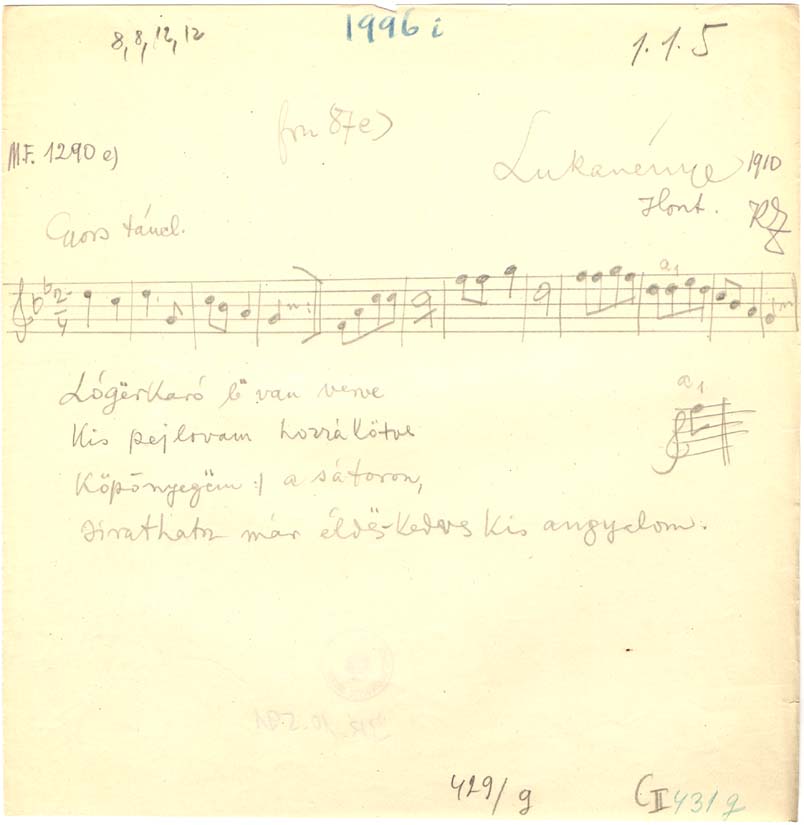 8, 8, 12, 12
1996 i
1. 1. 5
87e)
M.F. 1290 e)
Lukanénye 1910
Hont. KZ
Gyors táncl.
2
4
a1
Lógërkaró lë van verve
Kis pejlovam hozzákötve
Köpönyegëm :| a sátoron,
Sirathatz már éldës-kedves kis angyalom.
a1
429/g
CII 431g